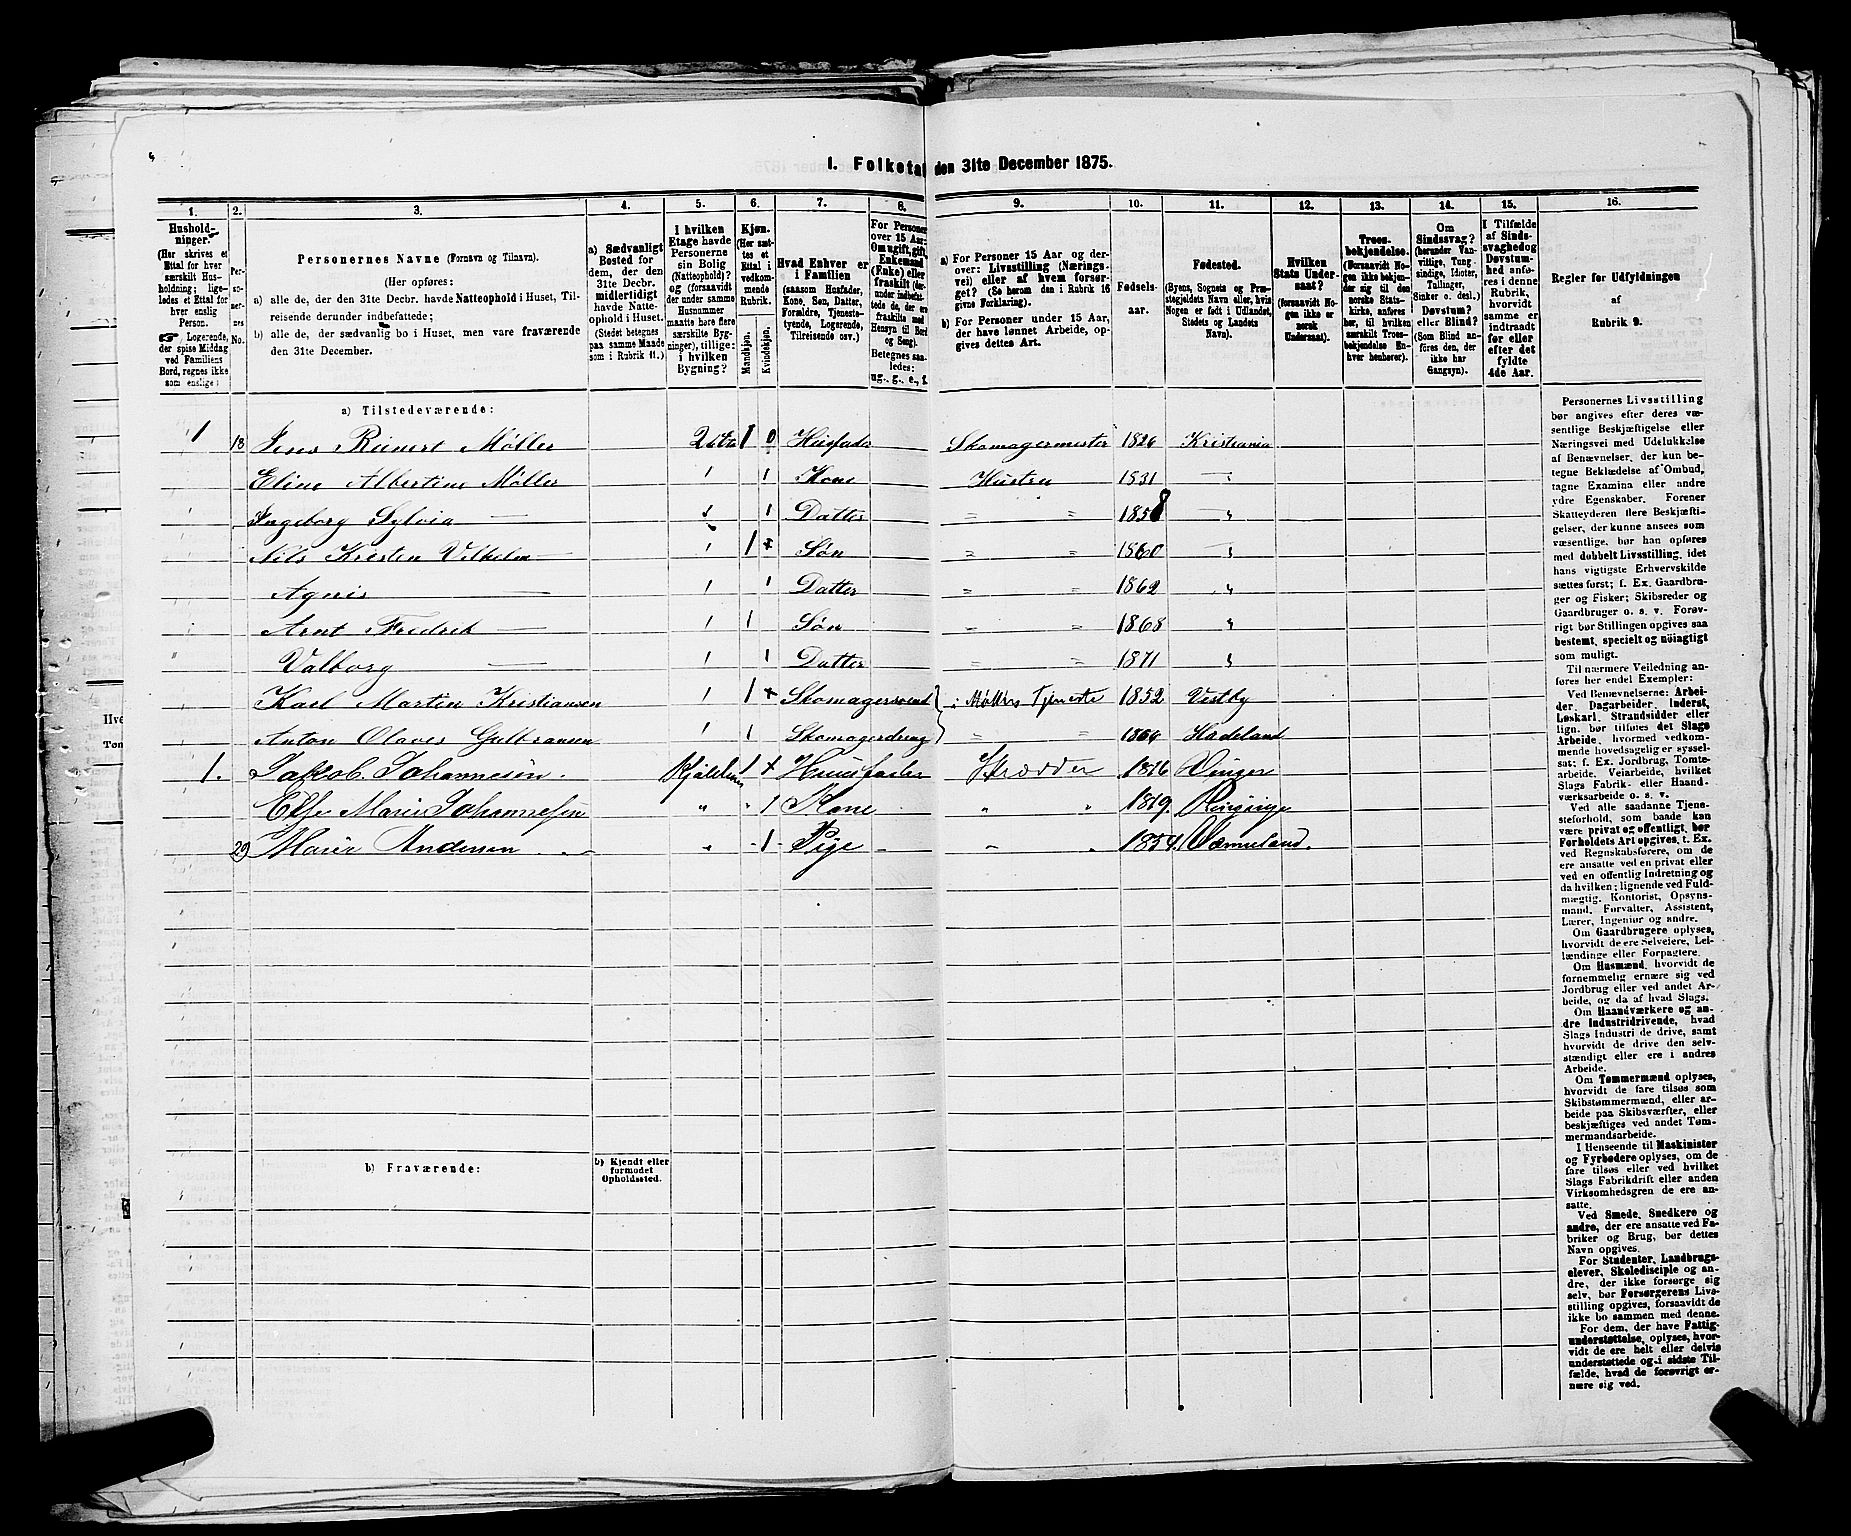 I. Folketal den 31te December 1875.
1. 2. 3. 4. 5. 6. 7. 8. 9. 10. 11. 12. 13. 14. 15. 16.
Hushold-
ninger.
(Her skrives et
Ettal for hver
særskilt Hus-
holdning; lige-
ledes et Ettal for
hver enslig
Person.
☞ Logerende,
der spise Middag
ved Familiens
Bord, regnes ikke
som enslige.)
Per-
so-
ner-
nes
No.
Personernes Navne (Fornavn og Tilnavn).
(Her opføres:
a) alle de, der den 31te Decbr. havde Natteophold i Huset, Til-
reisende derunder indbefattede;
b) alle de, der sædvanlig bo i Huset, men vare fraværende
den 31te December.
a) Sædvanligt
Bosted for
dem, der den
31te Decbr.
midlertidigt
havde Natte-
ophold i Huset.
(Stedet betegnes
paa samme Maade
som i Rubrik 11.)
I hvilken
Etage havde
Personerne
sin Bolig
(Natteophold)?
og (forsaavidt
der under samme
Husnummer
maatte høre flere
særskilte Byg-
ninger), tillige:
i hvilken
Bygning?
Kjøn.
(Her sæt-
tes et
Ettal i
vedkom-
mende
Rubrik.
Mandkjøn.
Kvindekjøn.
Hvad Enhver er
i Familien
(saasom Husfader,
Kone, Søn, Datter,
Forældre, Tjeneste-
tyende, Logerende,
Tilreisende osv.)
For Personer
over 15 Aar:
Om ugift, gift,
Enkemand
(Enke) eller
fraskilt (der-
under indbefat-
tede de, der ere
fraskilte med
Hensyn til Bord
og Seng).
Betegnes saa-
ledes:
ug., g., e., f.
a) For Personer 15 Aar og der-
over: Livsstilling (Nærings-
vei) eller af hvem forsør-
get? (Se herom den i Rubrik 16
givne Forklaring).
b) For Personer under 15 Aar,
der have lønnet Arbeide, op-
gives dettes Art.
Fødsels-
aar.
Fødested.
(Byens, Sognets og Præ-
stegjeldets Navn eller, hvis
Nogen er født i Udlandet,
Stedets og Landets
Navn).
Hvilken
Stats Under-
saat?
(forsaavidt No-
gen ikke er
norsk
Undersaat).
Troes-
bekjendelse.
(Forsaavidt No-
gen ikke bekjen-
der sig til den
norske Stats-
kirke, anføres
her, til hvilken
særskilt Troes-
bekjendelse En-
hver henhører).
Om
Sindssvag?
(herunder Van-
vittige, Tung-
sindige, Idioter,
Tullinger,
Sinker o. desl.)
Døvstum?
eller Blind?
(Som Blind an-
føres den, der
ikke har
Gangsyn).
I Tilfælde
af Sinds-
svaghed og
Døvstum-
hed anfø-
res i denne
Rubrik,
hvorvidt
samme er
indtraadt
før eller
efter det
fyldte
4de Aar.
Regler for Udfyldningen
af
Rubrik 9.
a) Tilstedeværende:
1 18 Jens Reinert Møller 2 1 0 Husfader Skomagermester 1826 Kristiania
Eline Albertine Møller 1 1 Kone Hustru 1831 —
Ingeborg Sylvia — 1 1 Datter " " 1858 "
Nils Kristen Vilhelm — 1 1 + Søn " " 1860 "
Agnes — 1 1 Datter " " 1862 "
Arnt Fredrik — 1 1 Søn " " 1868 "
Valborg — 1 1 Datter " " 1871 "
Karl Martin Kristiansen 1 1 + Skomagersvend } i Møllers Tjeneste 1852 Vestby
Anton Olaves Gulbransen 1 1 Skomagerdreng " " 1864 Hadeland
1. Jakob Johannesen. Kjælderen 1 + Huusfader Skrædder 1816 Vinger
Else Marie Johannesen " " 1 Kone " " 1819. Ringrige
29 Marie Andersen " 1 Pige " " 1854. Værmeland.
b) Fraværende:
b) Kjendt eller
formodet
Opholdssted.
Personernes Livsstilling
bør angives efter deres væ-
sentlige Beskjæftigelse eller
Næringsvei med Udelukkelse
af Benævnelser, der kun be-
tegne Beklædelse af Ombud,
tagne Examina eller andre
ydre Egenskaber. Forener
Skatteyderen flere Beskjæfti-
gelser, der kunne ansees som
væsentlige, bør han opføres
med dobbelt Livsstilling, idet
hans vigtigste Erhvervskilde
sættes først; f. Ex. Gaardbru-
ger og Fisker; Skibsreder og
Gaardbruger o. s. v. Forøv-
rigt bør Stillingen opgives saa
bestemt, specielt og nöiagtigt
som muligt.
Til nærmere Veiledning an-
føres her endel Exempler:
Ved Benævnelserne: Arbei-
der, Dagarbeider, Inderst,
Løskarl, Strandsidder eller
lign. bør tilføies det Slags
Arbeide, hvormed vedkom-
mende hovedsagelig er syssel-
sat; f. Ex. Jordbrug, Tomte-
arbeide, Veiarbeide, hvilket
Slags Fabrik- eller Haand-
værksarbeide o. s. v.
Ved alle saadanne Tjene-
steforhold, som baade kan
være privat og offentligt, bør
Forholdets Art opgives, t. Ex.
ved Regnskabsførere, om de
ere ansatte ved en privat eller
ved en offentlig Indretning og
da hvilken; lignende ved Fuld-
mægtig, Kontorist, Opsyns-
mand, Forvalter, Assistent,
Lærer, Ingeniør og andre.
Om Gaardbrugere oplyses,
hvorvidt de ere Selveiere, Lei-
lændinge eller Forpagtere.
Om Husmænd, hvorvidt de
fornemmelig ernære sig ved
Jordbrug eller ved andet Ar-
beide, og da af hvad Slags.
Om Haandværkere og an-
dre Industridrivende, hvad
Slags Industri de drive, samt
hvorvidt de drive den selv-
stændigt eller ere i andres
Arbeide.
Om Tømmermænd oplyses,
hvorvidt de fare tilsøs som
Skibstømmermænd, eller ar-
beide paa Skibsværfter, eller
beskjæftiges ved andet Tøm-
mermandsarbeide.
I Henseende til Maskinister
og Fyrbødere oplyses, om de
fare tilsøs eller ved hvilket
Slags Fabrikdrift eller anden
Virksomhedsgren de ere an-
satte.
Ved Smede, Snedkere og
andre, der ere ansatte ved Fa-
briker og Brug, bør dettes
Navn opgives.
For Studenter, Landbrugs-
elever, Skoledisciple og an-
dre, der ikke forsørge sig
selv, bør Forsørgerens Livs-
stilling opgives, forsaavidt de
ikke bo sammen med denne.
For dem, der have Fattig-
understøttelse, oplyses, hvor-
vidt de ere helt eller delvis
understøttede og i sidste Til-
fælde, hvad de forøvrigt er-
nære sig ved.